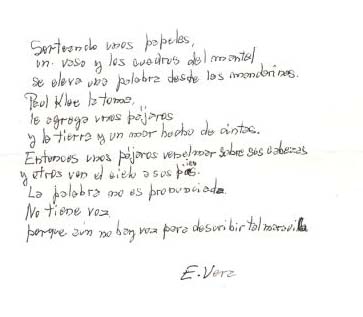 Sorteando unos papeles,
un vaso y los cuadros del mantel
se eleva una palabra desde las mandarinas.
Paul Klee la toma,
le agrega unos pájaros
y la tierra y un mar hecho de cintas.
Entonces unos pájaros ven el mar sobre sus cabezas
y otros ven el cielo a sus pies.
La palabra no es pronunciada.
No tiene voz
porque aún no hay voz para describir tal maravilla
E. Vera